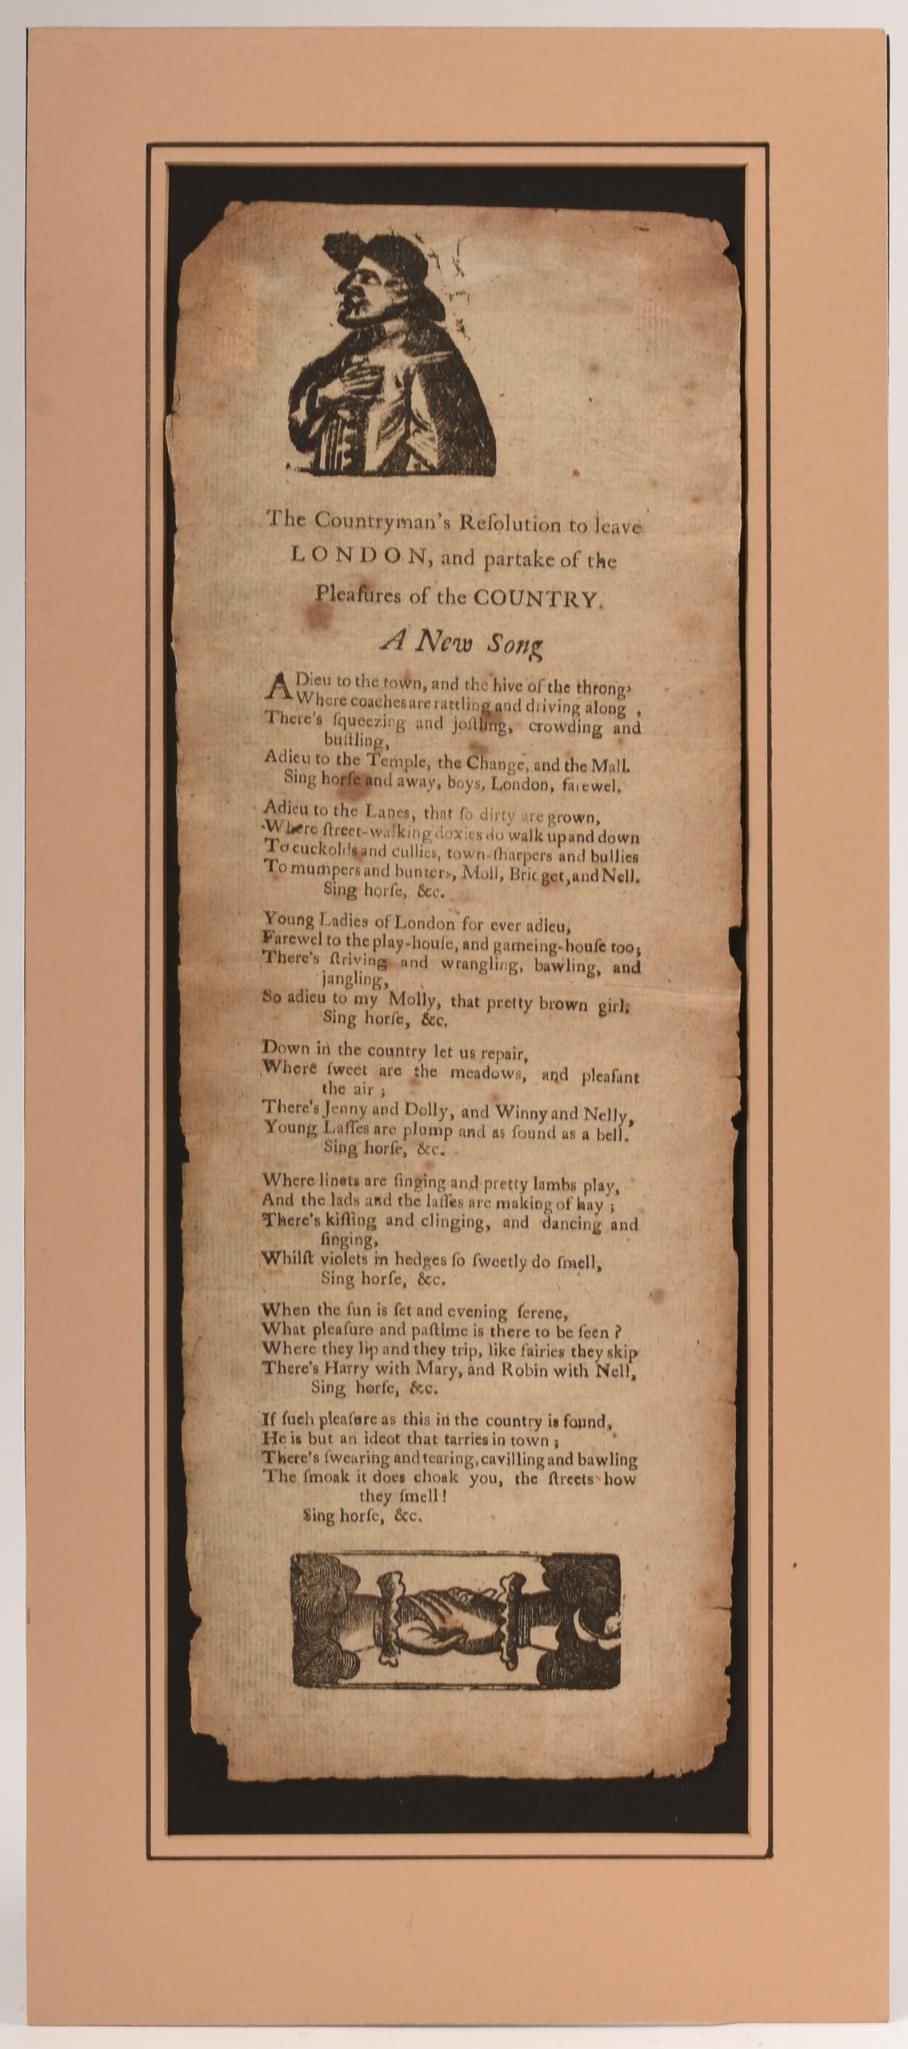 The Countryman's Reſolution to leave
LONDON, and partake of the
Pleaſures of the COUNTRY.
A New Song
ADieu to the town, and the hive of the throng,
Where coaches are rattling and driving along ,
There's ſqueezing and joſtling, crowding and
buſtling,
Adieu to the Temple, the Change, and the Mall.
Sing horſe and away, boys, London, farewel.
Adieu to the Lanes, that ſo dirty are grown,
Where ſtreet-walking doxies do walk up and down
To cuckolds and cullies, town-ſharpers and bullies
To mumpers and bunters, Moll, Bridget, and Nell.
Sing horſe, &c.
Young Ladies of London for ever adieu,
Farewel to the play-houſe, and gameing-houſe too;
There's ſtriving and wrangling, bawling, and
jangling,
So adieu to my Molly, that pretty brown girl.
Sing horſe, &c.
Down in the country let us repair,
Where ſweet are the meadows, and pleaſant
the air ;
There's Jenny and Dolly, and Winny and Nelly,
Young Laſſes are plump and as ſound as a bell.
Sing horſe, &c.
Where linets are ſinging and pretty lambs play,
And the lads and the laſſes are making of hay ;
There's kiſſing and clinging, and dancing and
ſinging,
Whilſt violets in hedges ſo ſweetly do ſmell,
Sing horſe, &c.
When the ſun is ſet and evening ſerene,
What pleaſuro and paſtime is there to be ſeen ?
Where they lip and they trip, like fairies they skip
There's Harry with Mary, and Robin with Nell,
Sing horſe, &c.
If ſuch pleaſure as this in the country is found,
He is but an ideot that tarries in town ;
There's ſwearing and tearing, cavilling and bawling
The ſmoak it does choak you, the ſtreets how
they ſmell !
Sing horſe, &c.